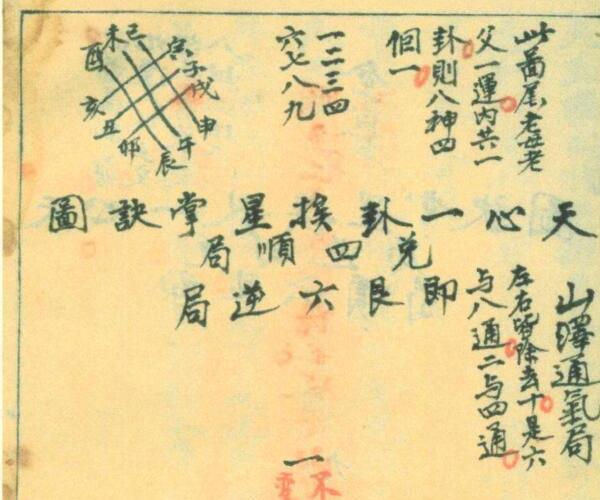 此圖屬老母老
父一運內共一
卦則八神四
個一
一二三四
六七八九
寅子戌申午辰卯丑亥酉未巳
天心一卦挨星掌訣圖
兌四順局
即艮六逆局
山澤通氣局
左右皆除去十是六
与八通二与四通
一